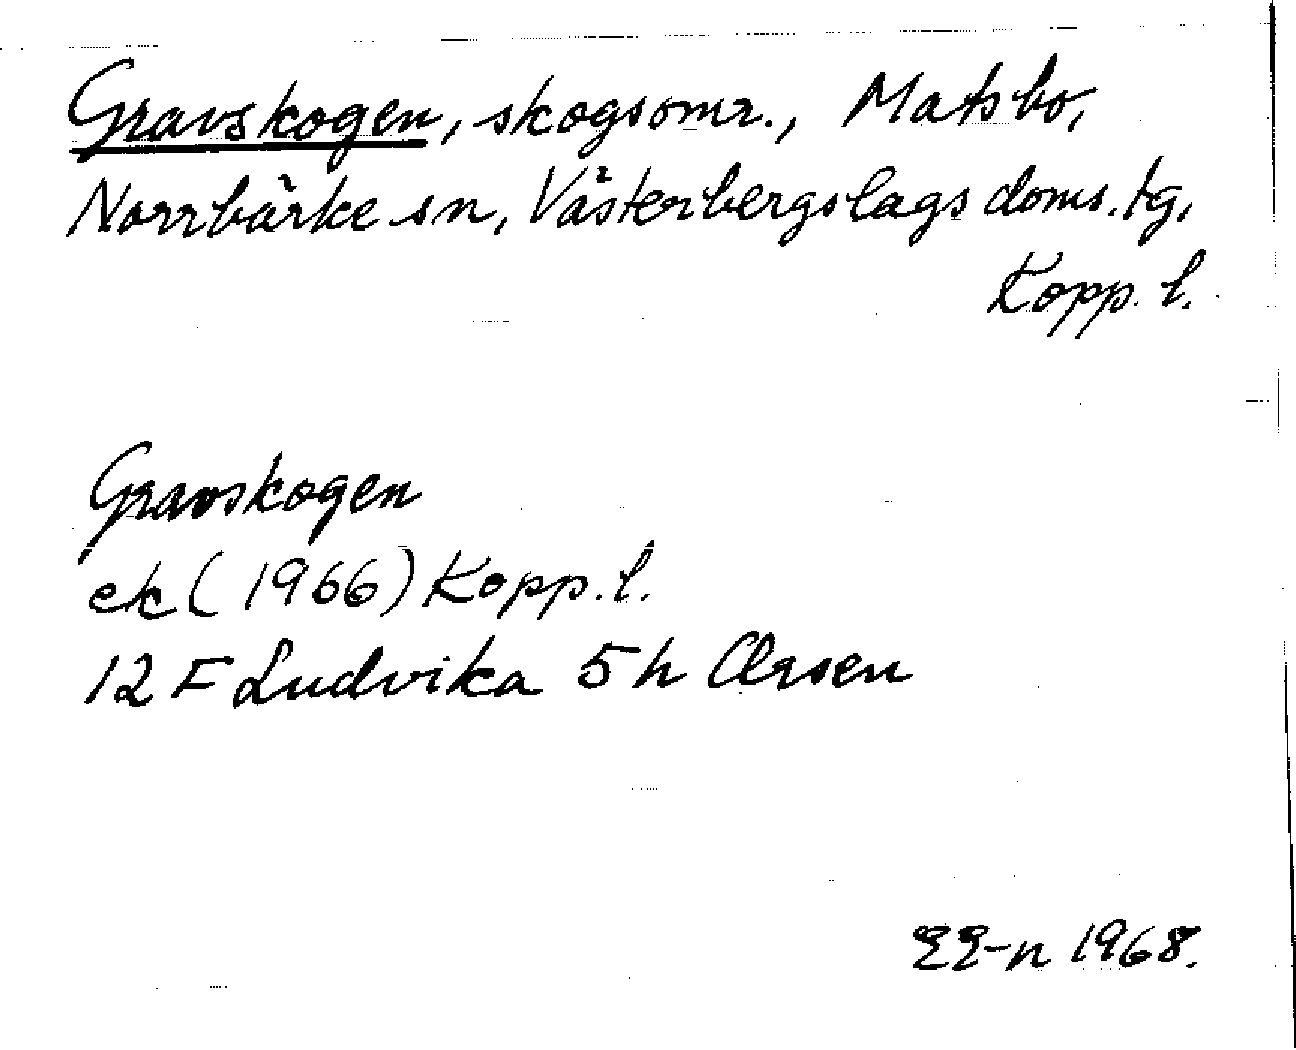 Gravskogen, skogsomr., Matsbo,
Norrbärke sn, Västerbergslags doms. tg,
Kopp. l.
Gravskogen
ek (1966) Kopp. l.
12 F Ludvika 5 h Ørsen
EE-n 1968.